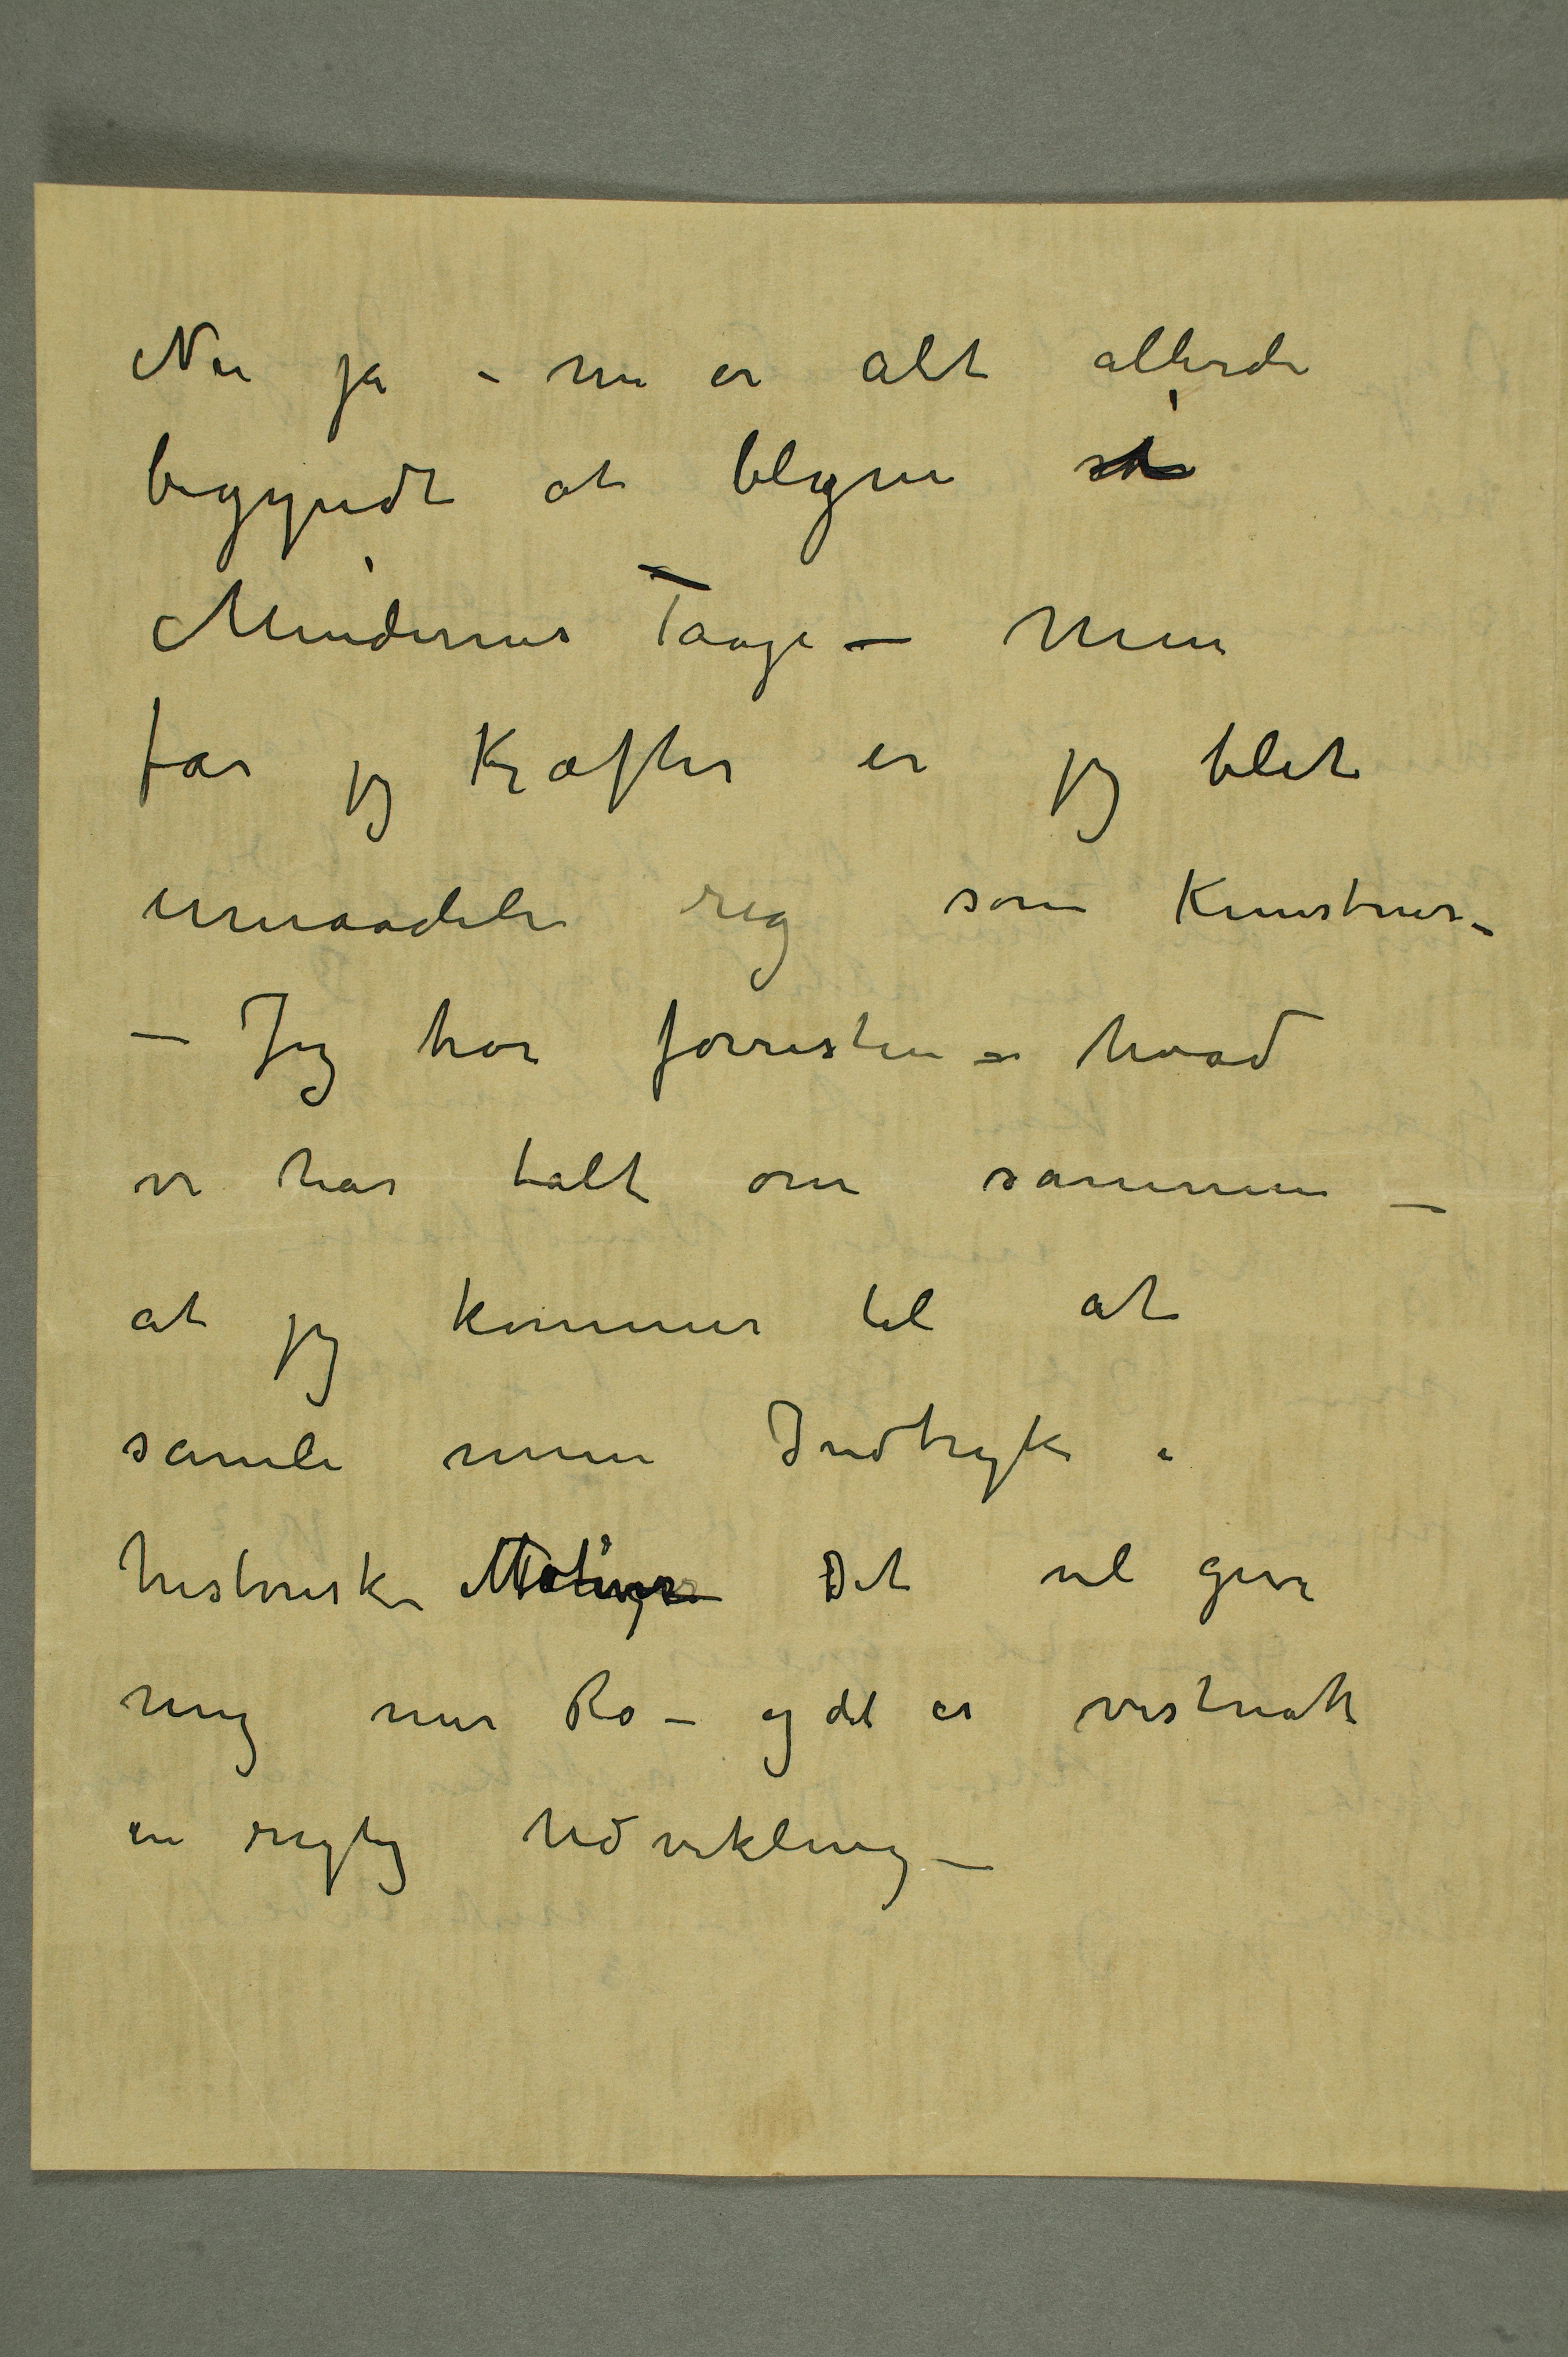 Nu ja – nu er alt allerede
begyndt at blegne i
Mindernes Taage – men
får jeg Kræfter er jeg blet
umaadele rig som Kunstner –
– Jeg tror forresten – hvad
vi har talt om sammen –
at jeg kommer til at
samle mine Indtryk i
historiske Motiver Det vil give
mig mer Ro – og det er vistnok
en rigtig Udvikling –